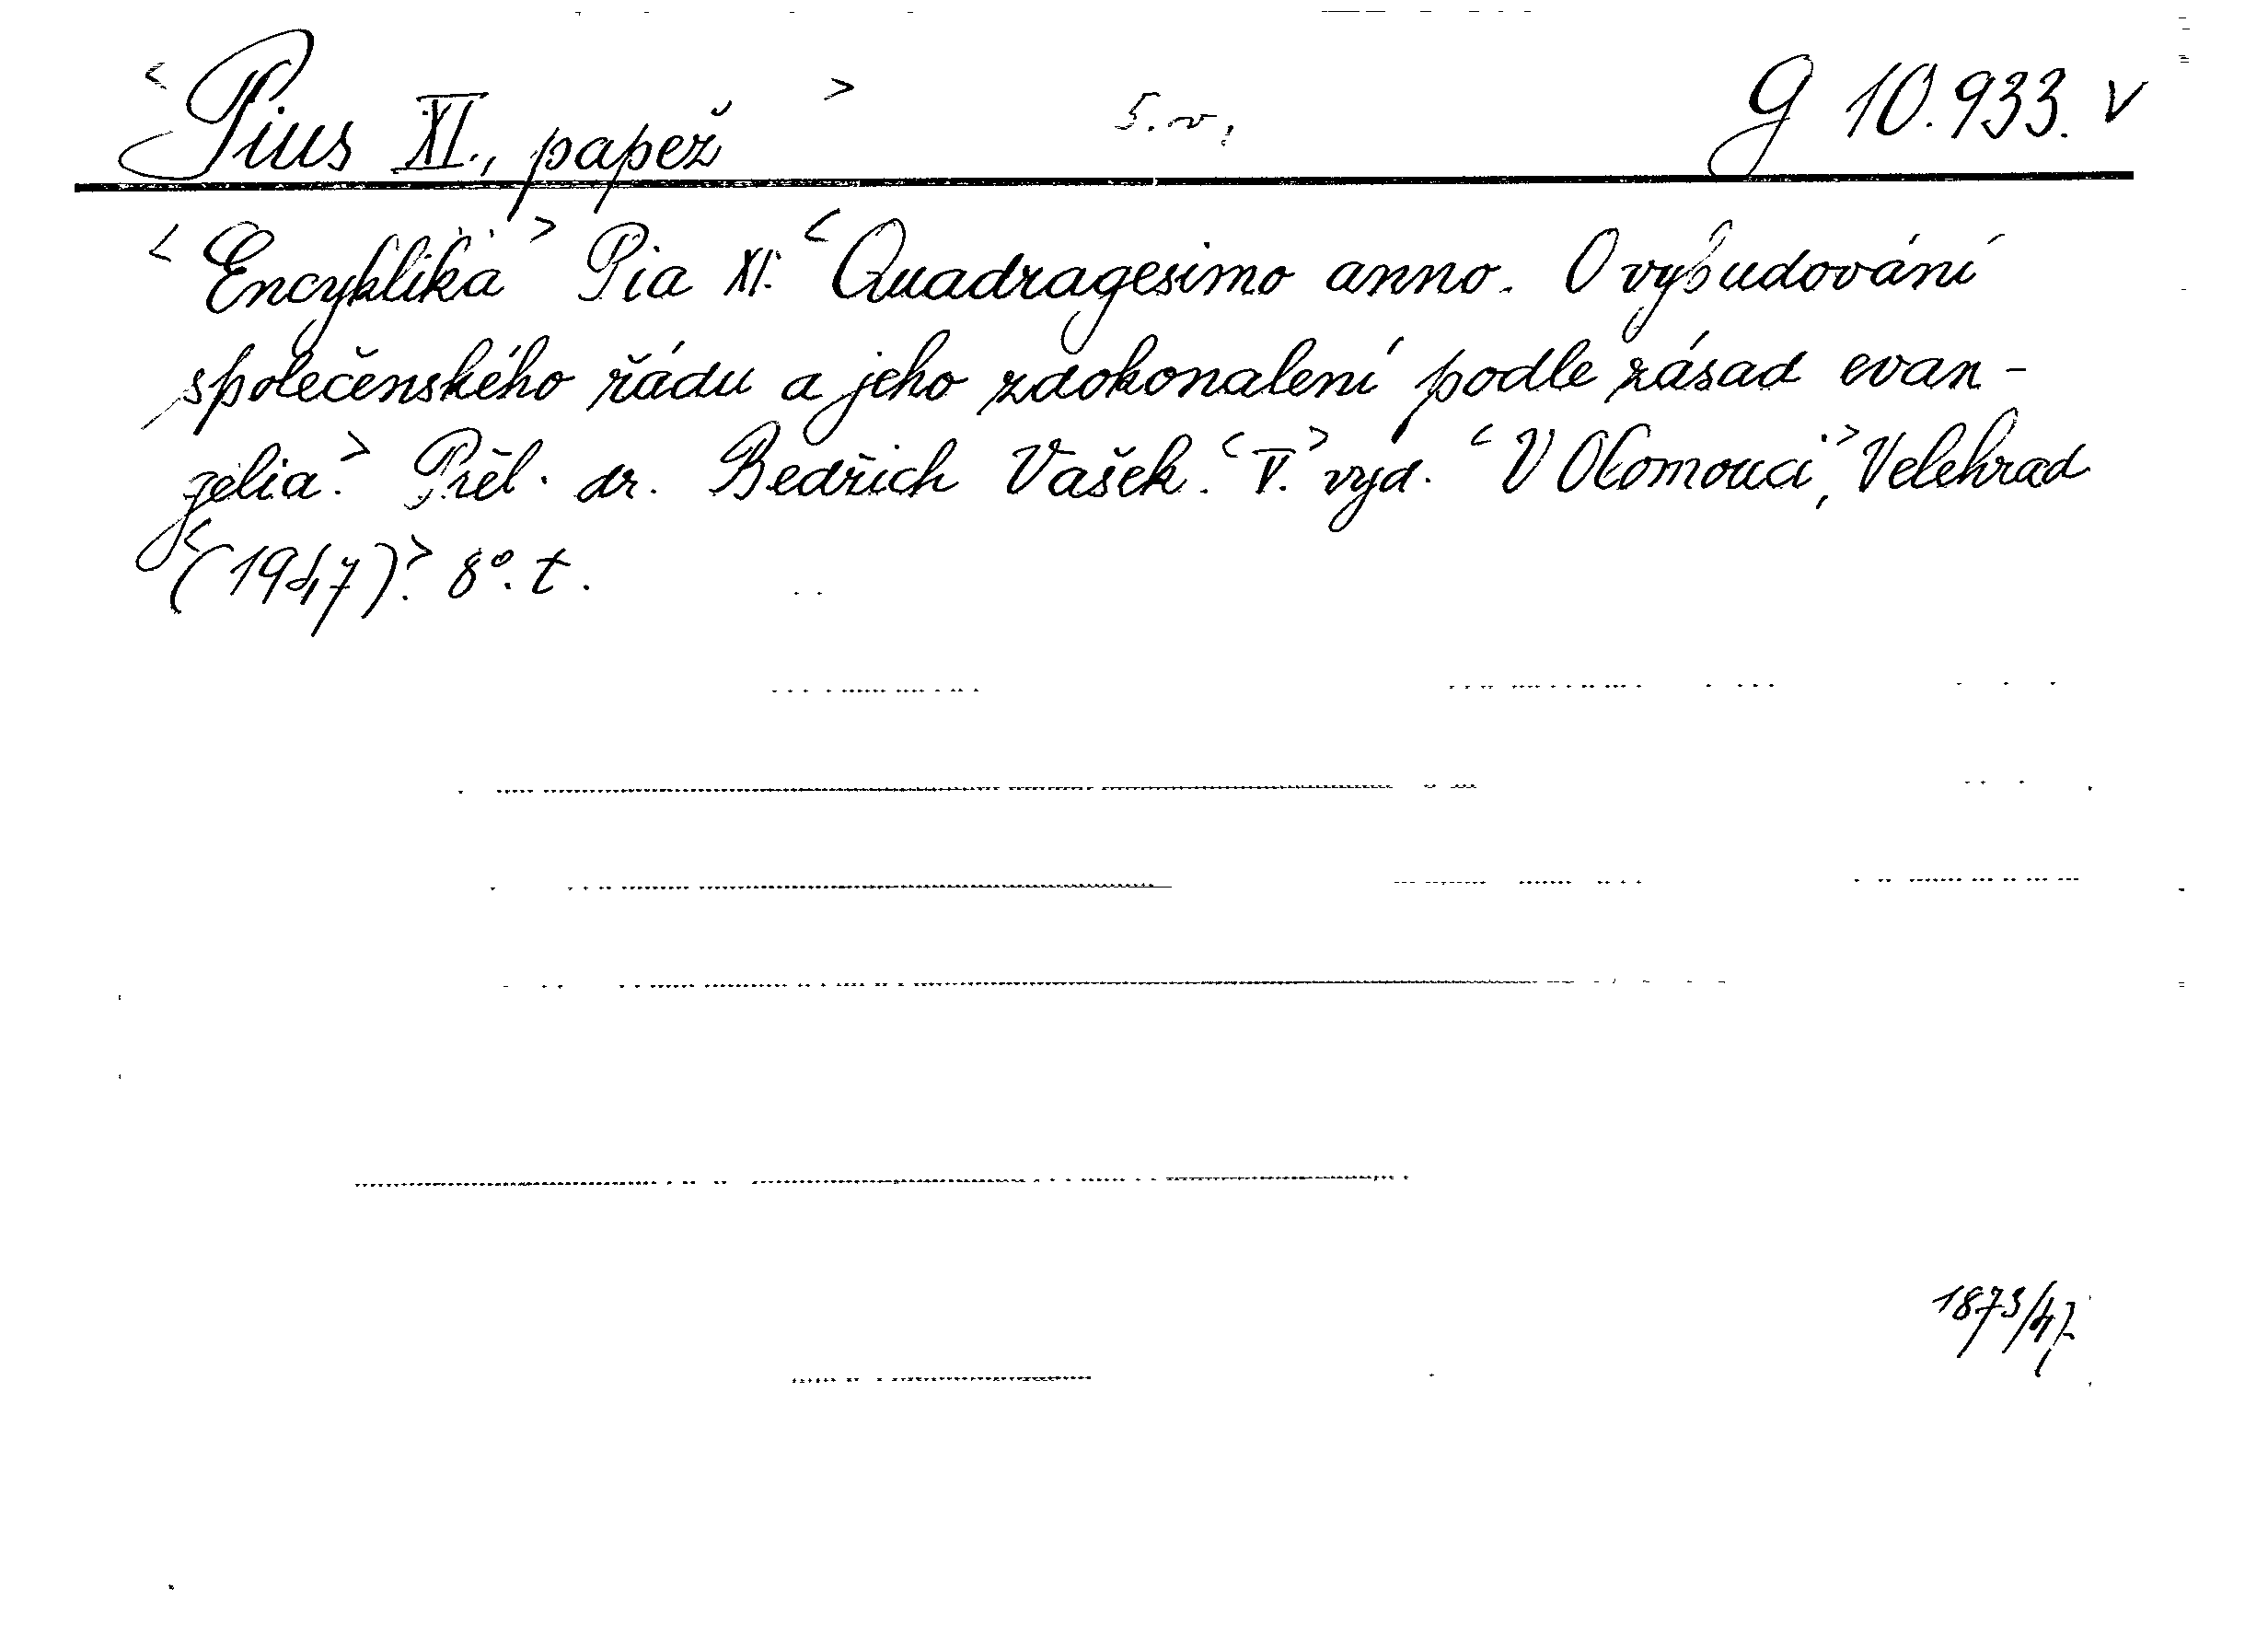 <Pius XI., papež> 5. v. G 10.933. v
<Encyklika> Pia XI. <Quadragesimo anno. O vybudování
společenského řádu a jeho zdokonalení podle zásad evan-
gelia.> Přel. dr. Bedřich Vašek. <V.> vyd. <V Olomouci,> Velehrad
<(1947).> 8°. t.
1873/47